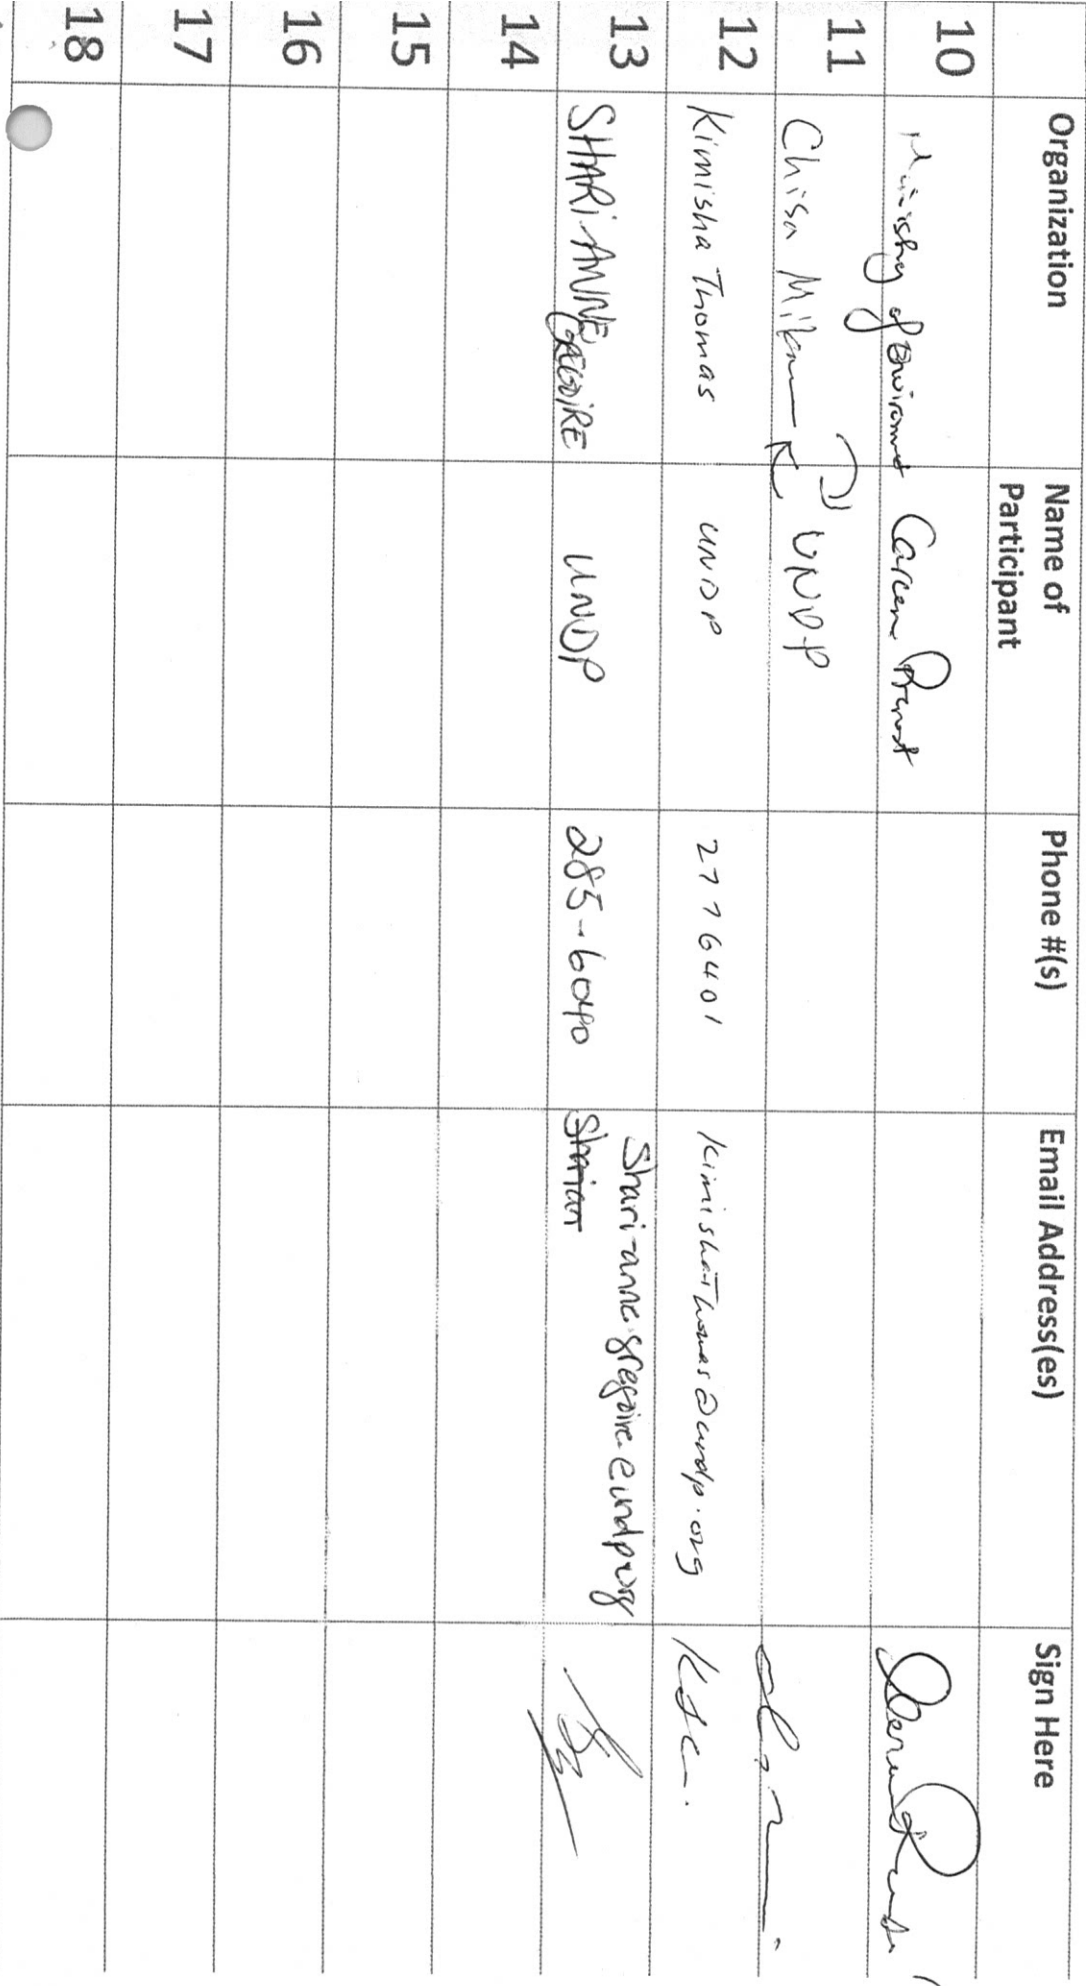 Organization Name of Participant Phone #(s) Email Address(es) Sign Here
10 Ministry of Environment Careen Prevost
11 Chisa UNDP
12 Kimisha Thomas UNDP 2776401 kimisha.thomas@undp.org
13 SHARI-ANNE GREGOIRE UNDP 285-6040 Shari-anne.gregoire@undp.org
14
15
16
17
18